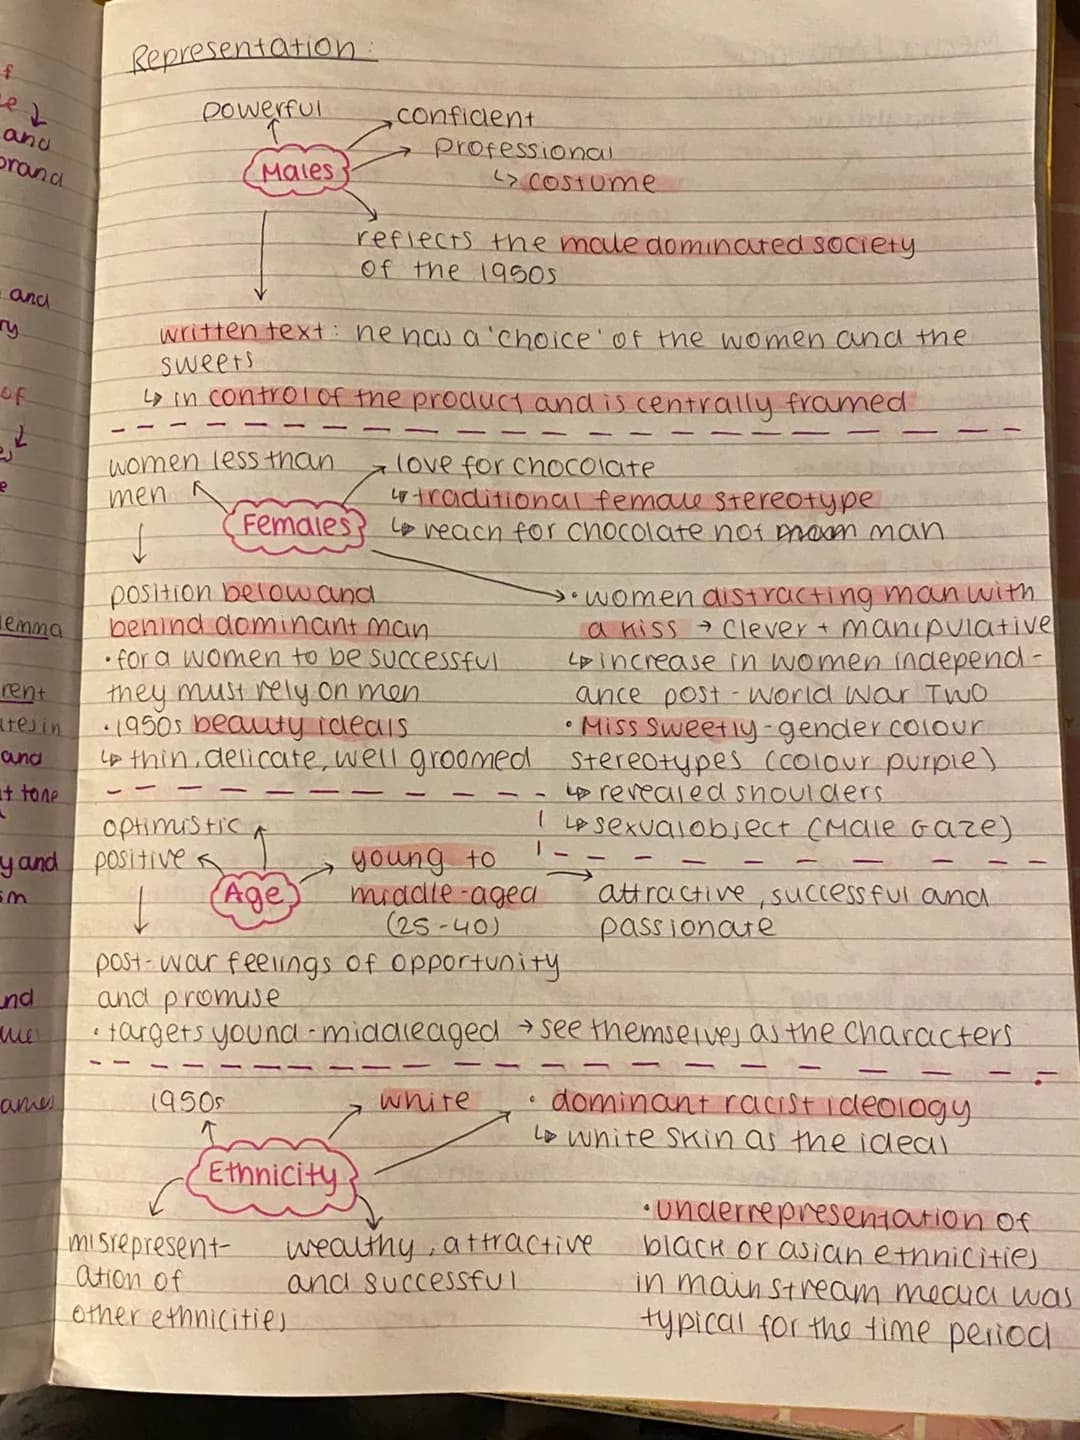 Representation:
powerful
confident
professional
↳ costume
Males
reflects the male dominated society
of the 1950s
written text: he has a 'choice' of the women and the
sweets
↳ in control of the product and is centrally framed
women less than
men
love for chocolate
↳ traditional female stereotype
↳ reach for chocolate not man
Females
position below and
behind dominant man
• for a women to be successful
they must rely on men
• 1950s beauty ideals
↳ thin, delicate, well groomed
• women distracting man with
a kiss → clever + manipulative
↳ increase in women independ-
ance post-world war Two
• Miss Sweetly - gender colour
stereotypes (colour purple)
↳ revealed shoulders
↳ sexual object (Male Gaze)
optimistic
positive
Age
young to
middle-aged
(25-40)
attractive, successful and
passionate
post-war feelings of opportunity
and promise
• targets yound-middleaged → see themselves as the characters
1950s
white
• dominant racist ideology
↳ white skin as the ideal
Ethnicity
misrepresent-
ation of
other ethnicities
wealthy, attractive
and successful
• underrepresentation of
black or asian ethnicities
in mainstream media was
typical for the time period
f
and
brand
and
ry
of
emma
rent
ates in
and
t tone
y and
sm
nd
ames